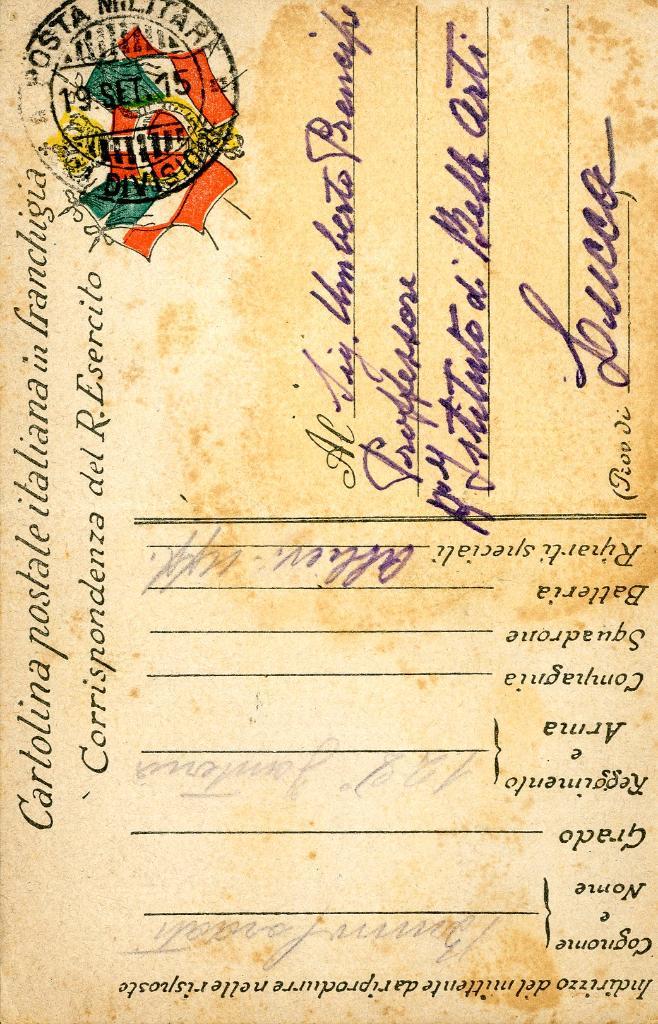 Cartolina postale italiana in franchigia
Corrispondenza del R. Esercito
POSTA MILITARE
19. SET. 15
DIVISIONE
Al Sig. Umberto Prencipe
Professore
Istituto di Belle Arti
Lucca
(Prov di
Indirizzo del mittente da riprodurre nelle risposte
Cognome
e
Nome
Grado
Reggimento
e
Arma
122° Fanteria
Compagnia
Squadrone
Batteria
Riparti speciali Allievi-uff.